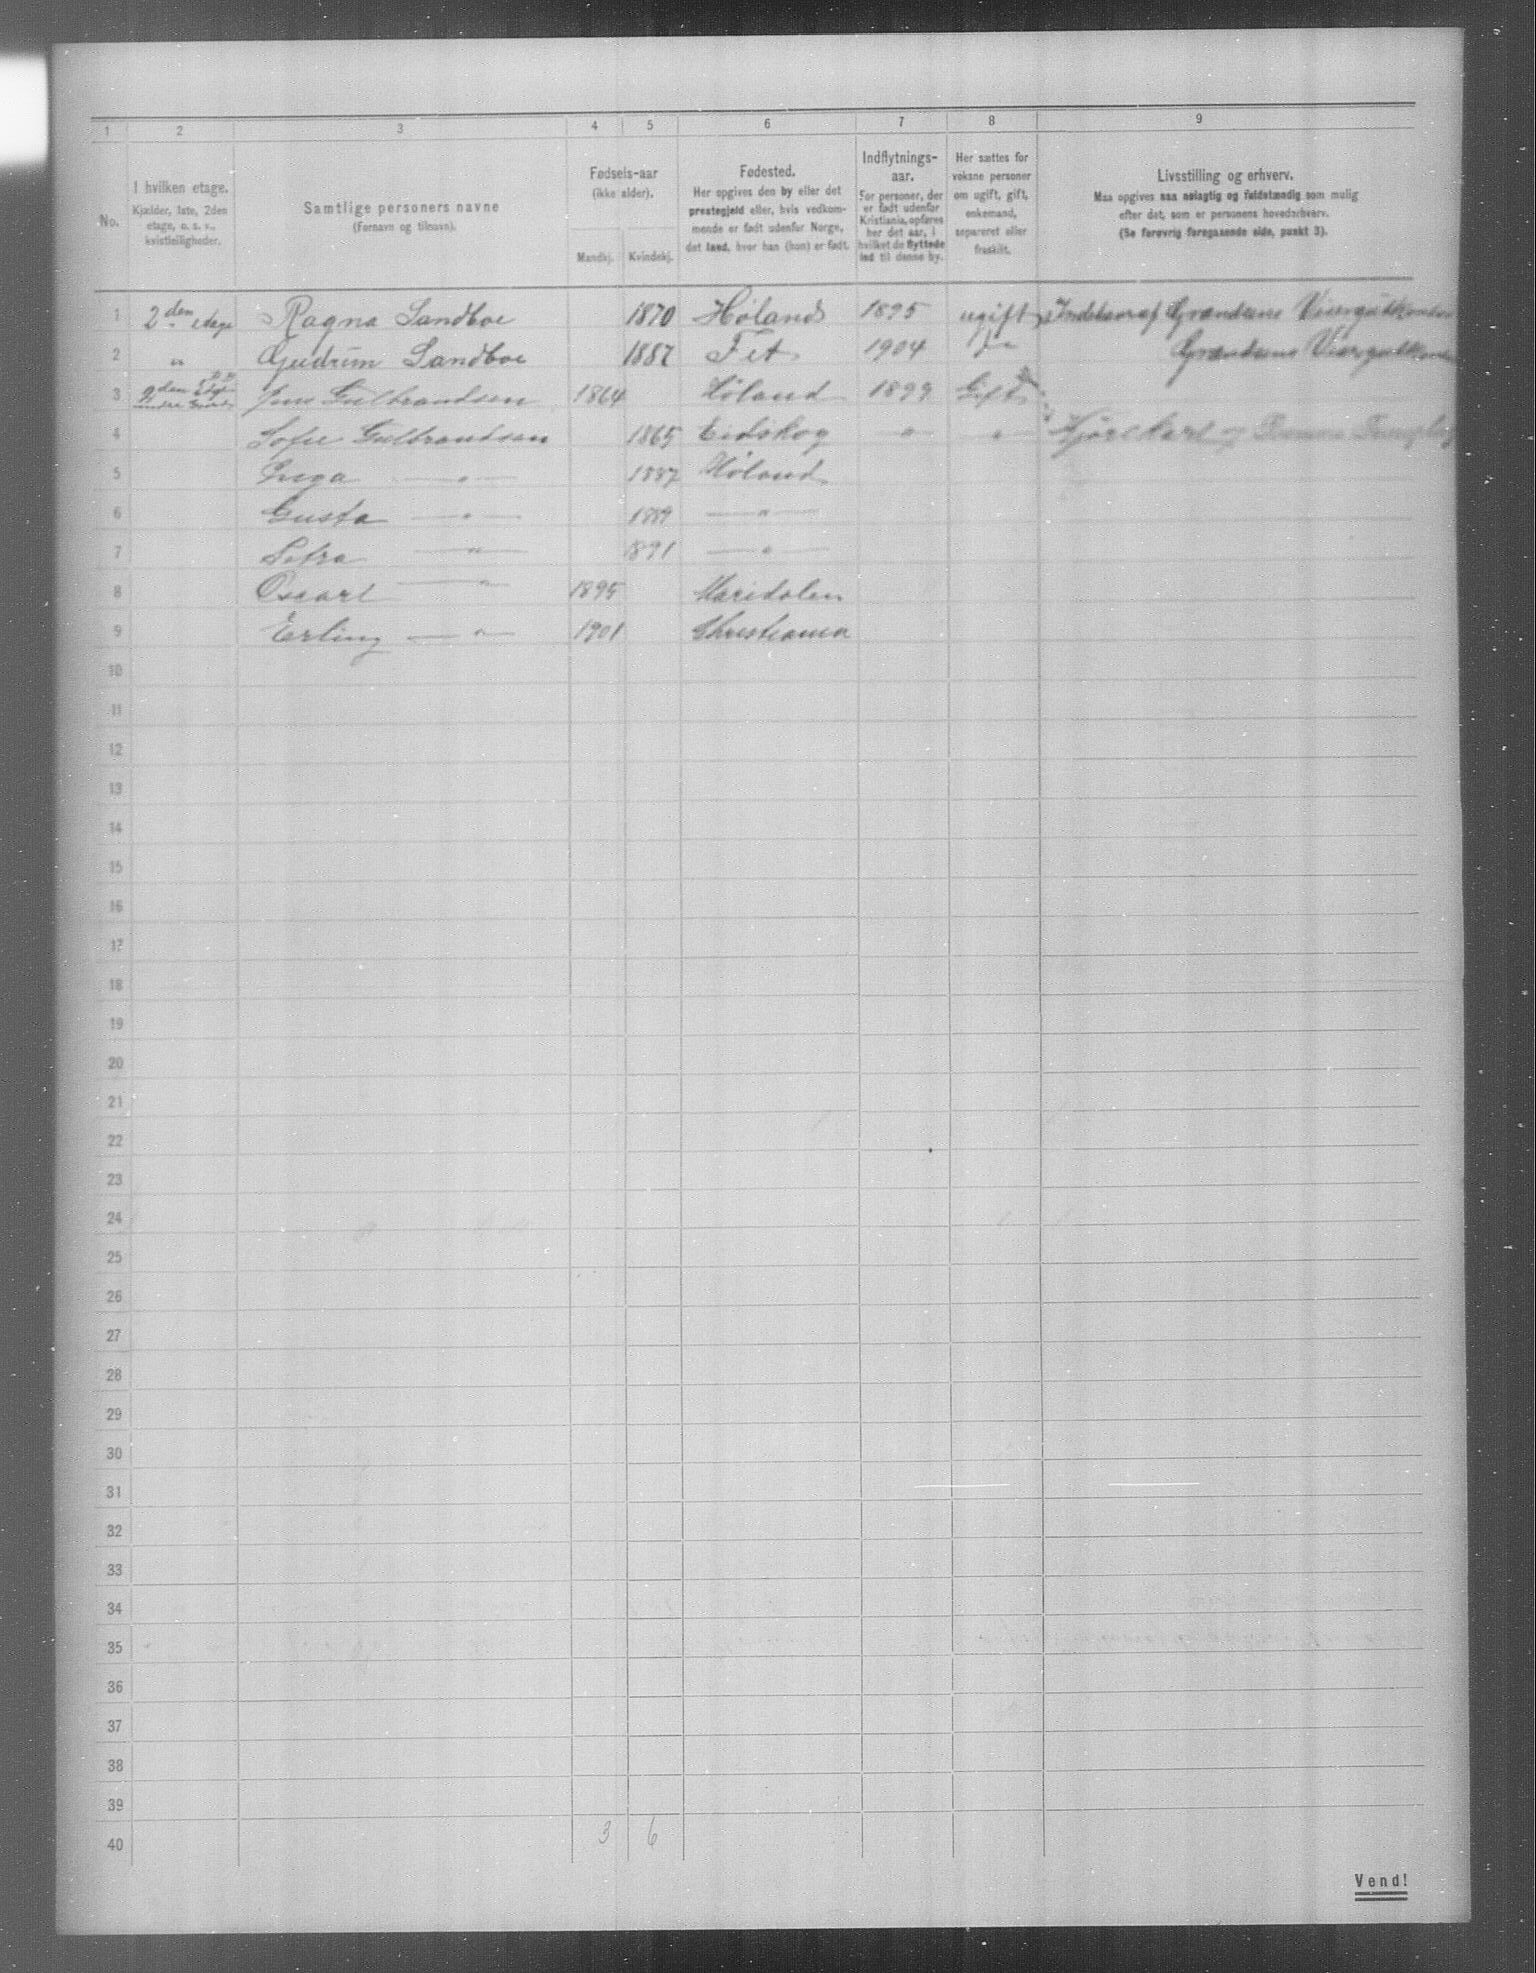 1 2 3 4 5 6 7 8 9
No.
I hvilken etage.
Kjælder, 1ste, 2den
etage, o. s. v.,
kvistleiligheder.
Samtlige personers navne
(Fornavn og tilnavn).
Fødsels-aar
(ikke alder).
Mandkj. Kvindekj.
Fødested.
Her opgives den by eller det
prestegjeld eller, hvis vedkom-
mende er født udenfor Norge,
det land, hvor han (hun) er født.
Indflytnings-
aar.
For personer, der
er født udenfor
Kristiania, opføres
her det aar, i
hvilket de flyttede
ind til denne by.
Her sættes for
voksne personer
om ugift, gift,
enkemand,
separeret eller
fraskilt.
Livsstilling og erhverv.
Maa opgives saa nøiagtig og fuldstændig som mulig
efter det, som er personens hovederhverv.
(Se forøvrig foregaaende side, punkt 3).
1 2den etage Ragna Sandboe 1870 Høland 1895 ugift
2 " Gudrun Sandboe 1887 Fet 1904
3 2den Etage Gulbrandsen 1864 Høland 1899 Gift
4 Sofie Gulbrandsen 1865 Eidskog " "
5 Inga — " — 1887 Høland
6 Gusta — " — 1889 — " —
7 — " — 1891 — " —
8 Oscarl — " — 1895 Maridalen
9 Erling — " — 1901 Christiania
10
11
12
13
14
15
16
17
18
19
20
21
22
23
24
25
26
27
28
29
30
31
32
33
34
35
36
37
38
39
40 3 6
Vend!